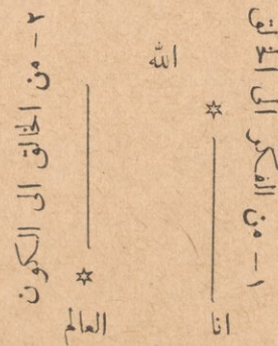 ١ - من الفكر الى الخالق
الله
انا
٢ - من الخالق الى الكون
العالم